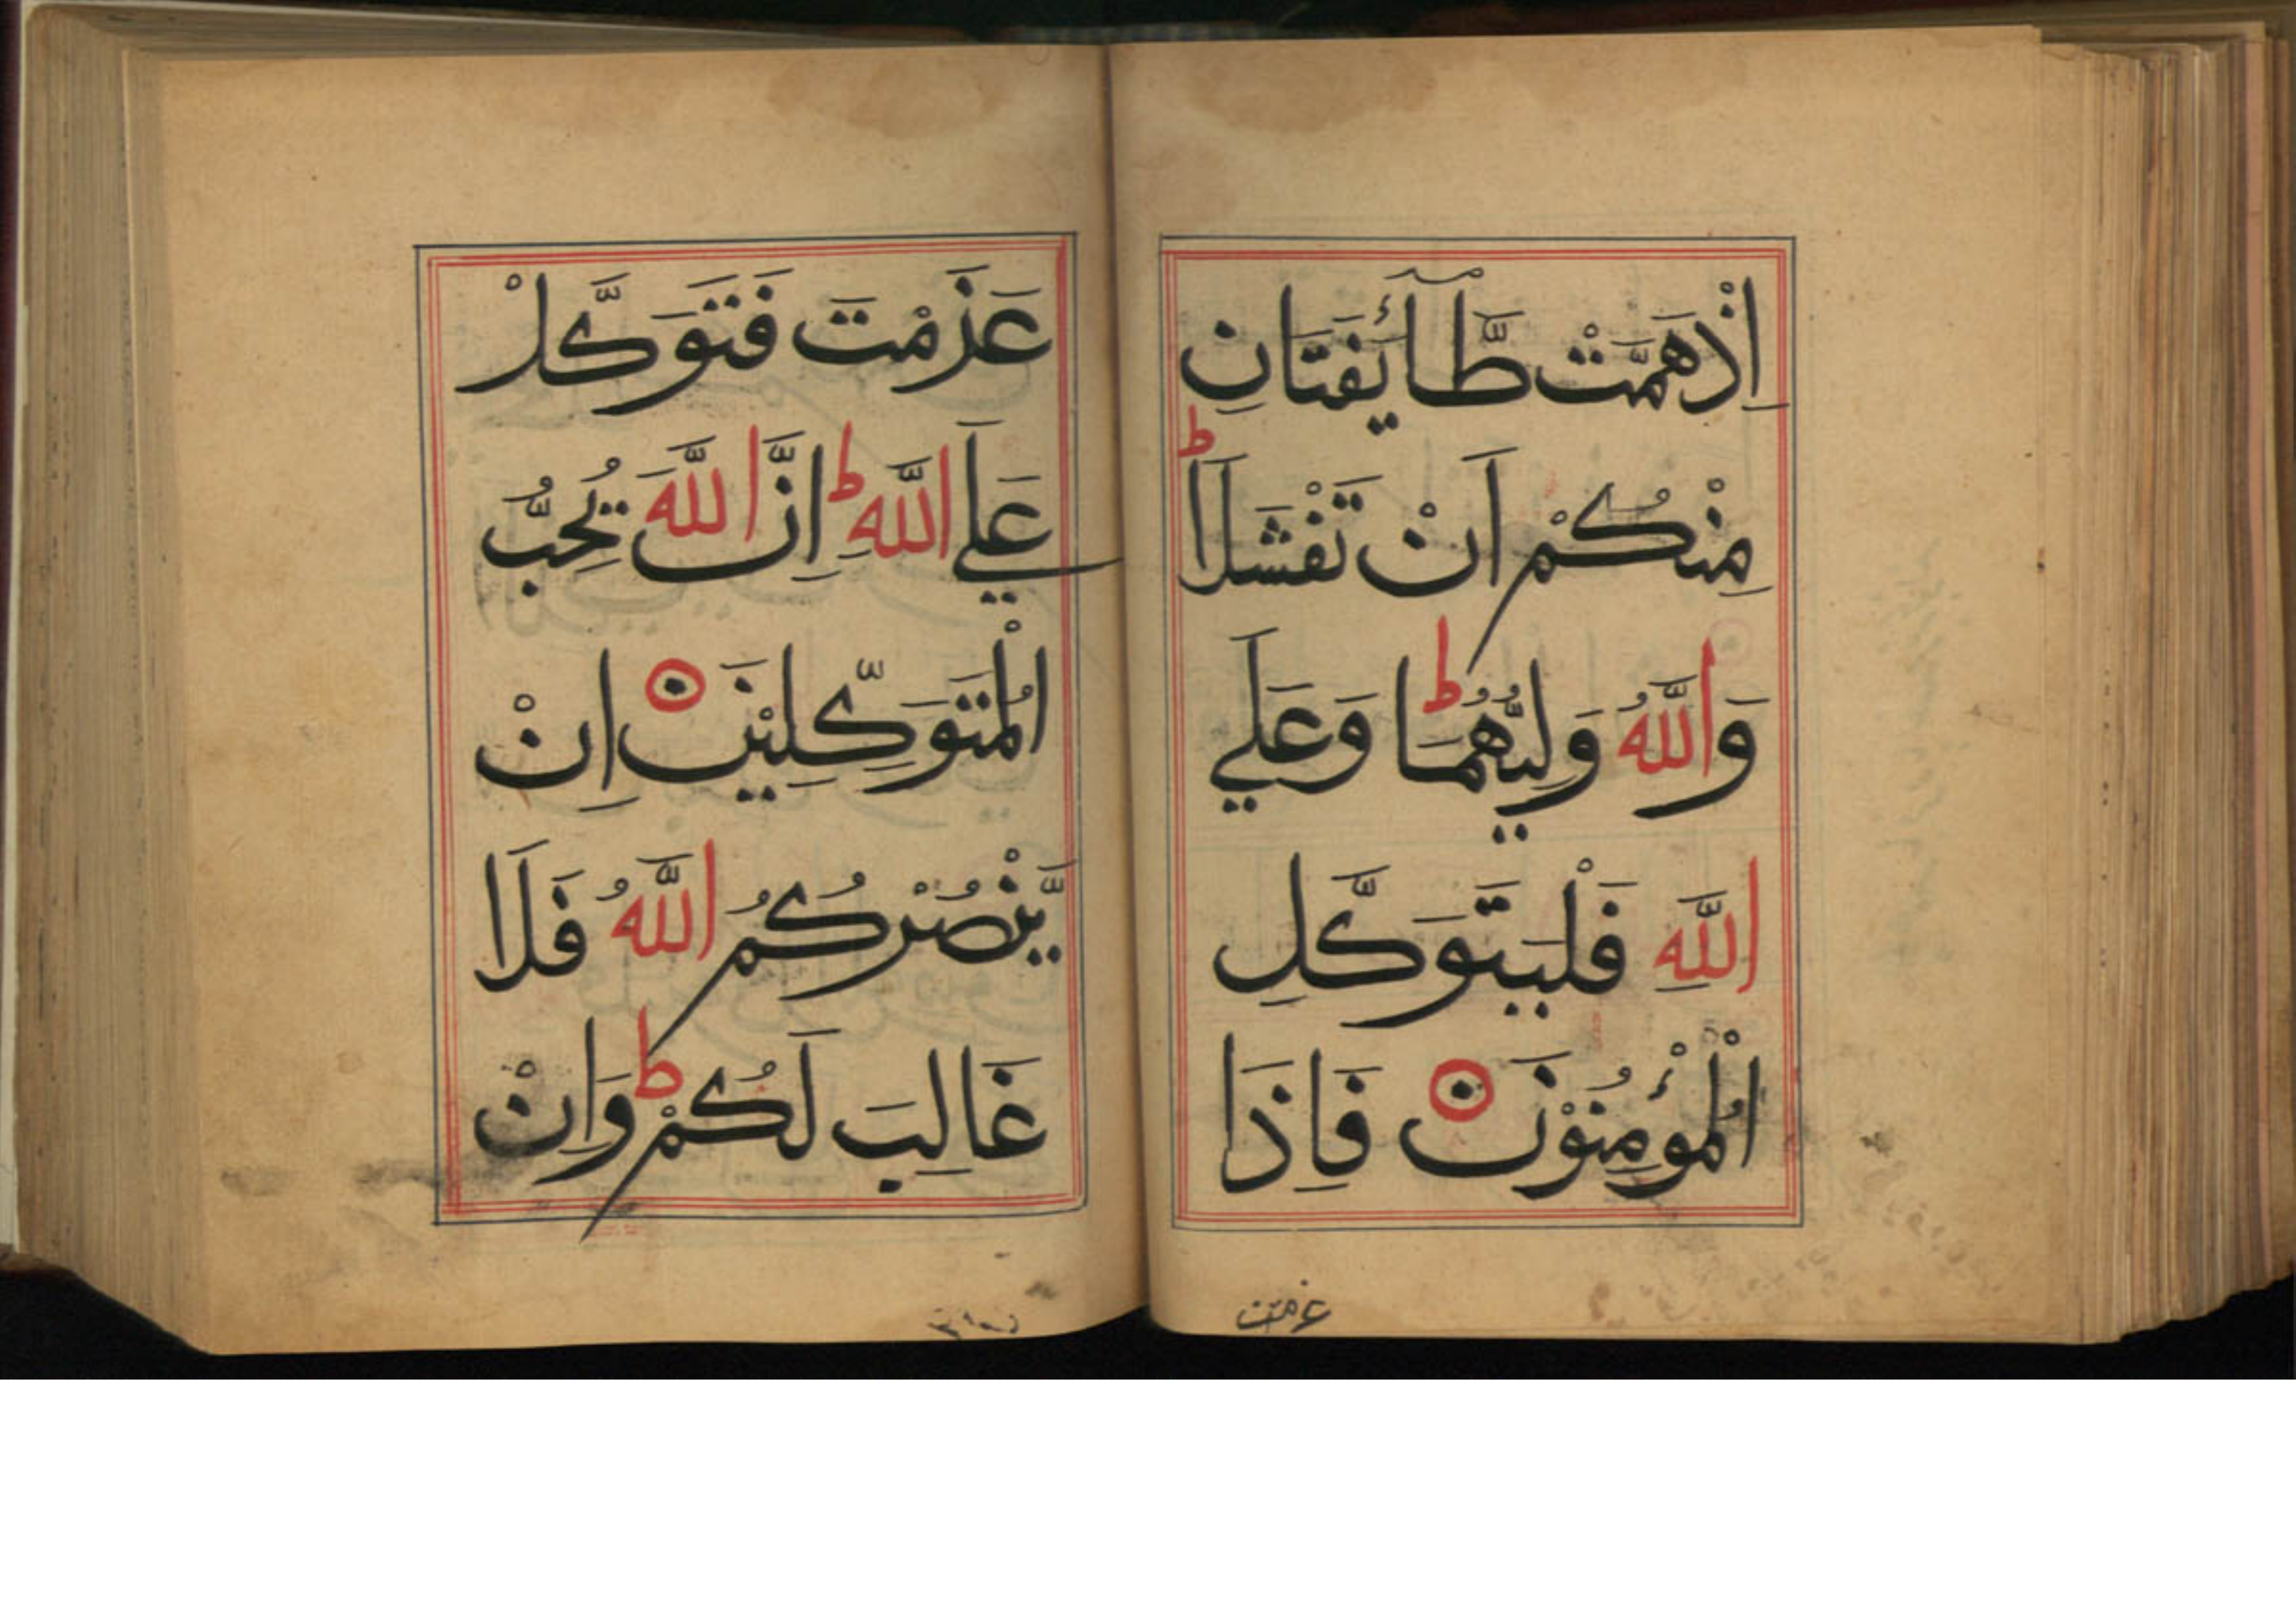 اِذْ هَمَّتْ طَّآئِفَتَانِ
مِنْكُمْ اَنْ تَفْشَلَا ؕ
وَاللّٰهُ وَلِيُّهُمَا ؕ وَعَلَي
اللّٰهِ فَلْيَتَوَكَّلِ
الْمُؤْمِنُوْنَ ۝ فَاِذَا
عزمت
عَزَمْتَ فَتَوَكَّلْ
عَلَي اللّٰهِ ؕ اِنَّ اللّٰهَ يُحِبُّ
الْمُتَوَكِّلِيْنَ ۝ اِنْ
يَّنْصُرْكُمُ اللّٰهُ فَلَا
غَالِبَ لَكُمْ ؕ وَاِنْ